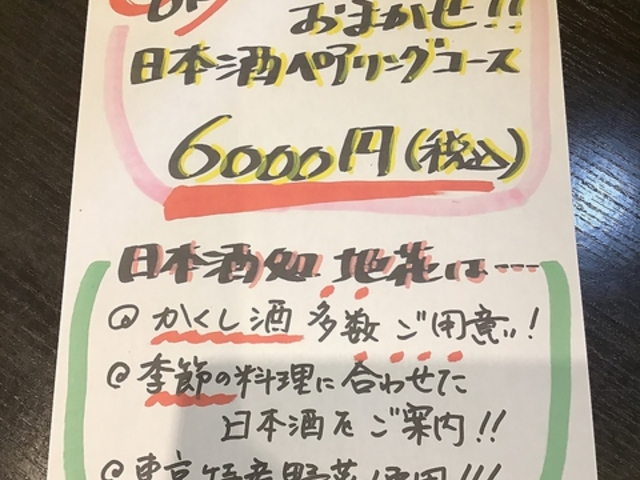 おまかせ!!
日本酒ペアリングコース
6000円(税込)
日本酒処 地花は---
@ かくし酒 多数 ご用意!!
@ 季節の料理に合わせた
日本酒をご案内!!
@ 東京特産野菜 使用!!!